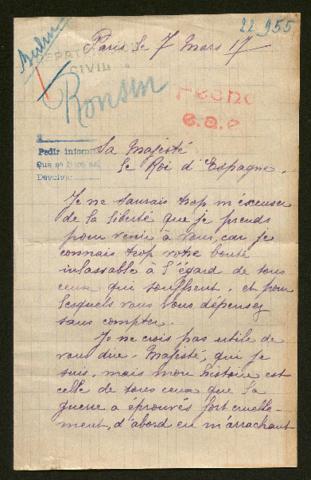 22955
Paris le 7 Mars 17
Berlin
REPATRI
CIVIL
Ronsin
Pedir inform
Que se
Devolver
Sa Majesté
le Roi d'Espagne.
Je ne saurais trop m'excuser
de la liberté que je prends
pour venir à vous, car je
connais trop votre bonté
inlassable à l'égard de tous
ceux qui souffrent, et pour
lesquels vous vous dépensez
sans compter.
Je ne crois pas utile de
vous dire, Majesté, qui je
suis, mais mon histoire est
celle de tous ceux que la
guerre a éprouvés fort cruelle-
ment, d'abord en m'arrachant